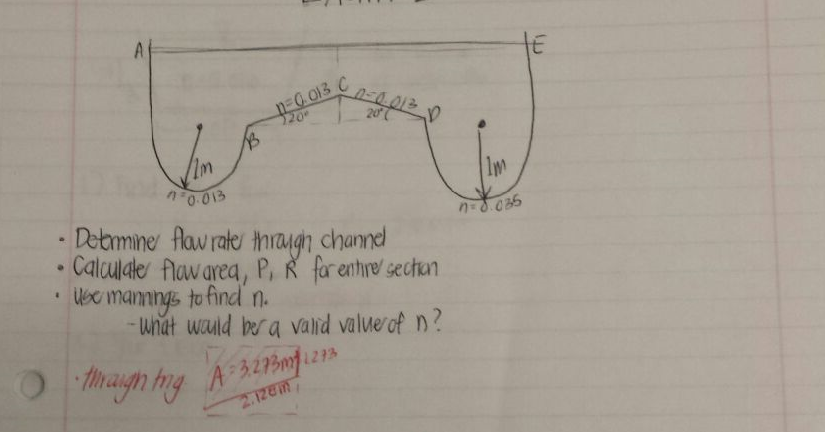 A E
n=0.013 C n=0.013
20° 20°
B D
1m 1m
n=0.013 n=0.035
• Determine flow rate through channel
• Calculate flow area, P, R for entire section
• use mannings to find n.
- What would be a valid value of n?
• through trig A = 3.273m 1.273
2.128m